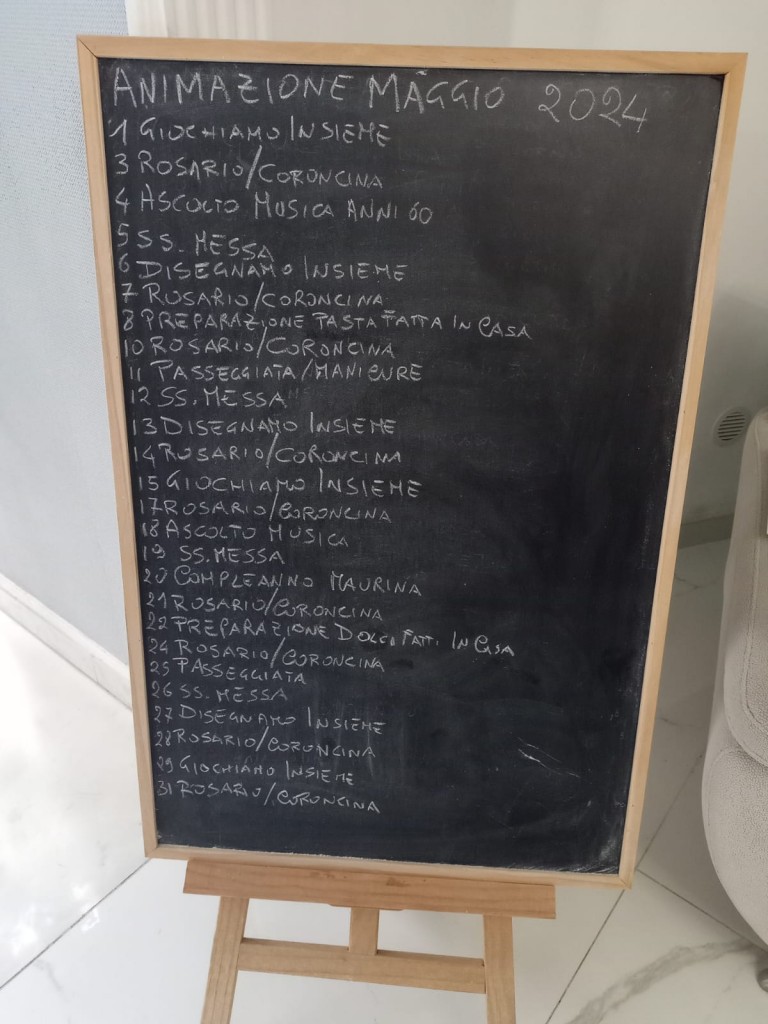 ANIMAZIONE MAGGIO 2024
1 GIOCHIAMO INSIEME
3 ROSARIO/CORONCINA
4 ASCOLTO MUSICA ANNI 60
5 SS. MESSA
6 DISEGNAMO INSIEME
7 ROSARIO/CORONCINA
8 PREPARAZIONE PASTA FATTA IN CASA
10 ROSARIO/CORONCINA
11 PASSEGGIATA/MANICURE
12 SS. MESSA
13 DISEGNAMO INSIEME
14 ROSARIO/CORONCINA
15 GIOCHIAMO INSIEME
17 ROSARIO/CORONCINA
18 ASCOLTO MUSICA
19 SS. MESSA
20 COMPLEANNO MAURINA
21 ROSARIO/CORONCINA
22 PREPARAZIONE DOLCI FATTI IN CASA
24 ROSARIO/CORONCINA
25 PASSEGGIATA
26 SS. MESSA
27 DISEGNAMO INSIEME
28 ROSARIO/CORONCINA
29 GIOCHIAMO INSIEME
31 ROSARIO/CORONCINA